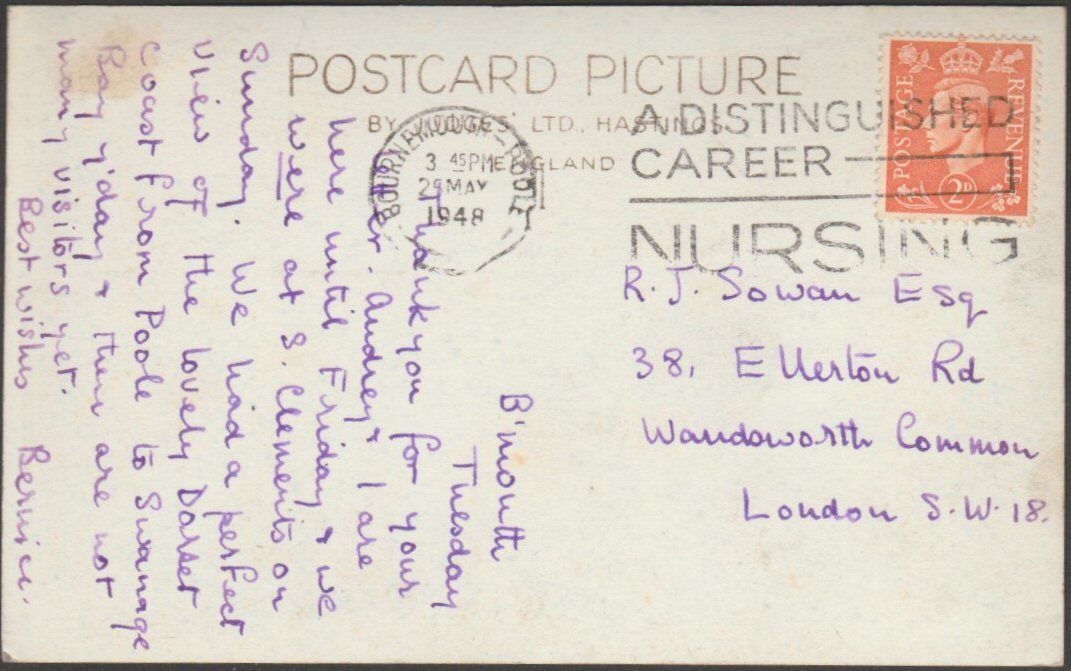 POSTCARD PICTURE
BY JUDGES' LTD., HASTINGS.
ENGLAND
BOURNEMOUTH - POOLE
3 45PM
25 MAY
1948
A DISTINGUISHED
CAREER
NURSING
POSTAGE
REVENUE
2D
R. J. Sowan Esq
38, Ellerton Rd
Wandsworth Common
London S.W. 18.
B'mouth
Tuesday
Thank you for your
letter. Audrey & I are
here until Friday & we
were at S. Clements on
Sunday. We had a perfect
view of the lovely Dorset
coast from Poole to Swanage
Bay y'day & there are not
many visitors yet.
Best wishes Bernice.